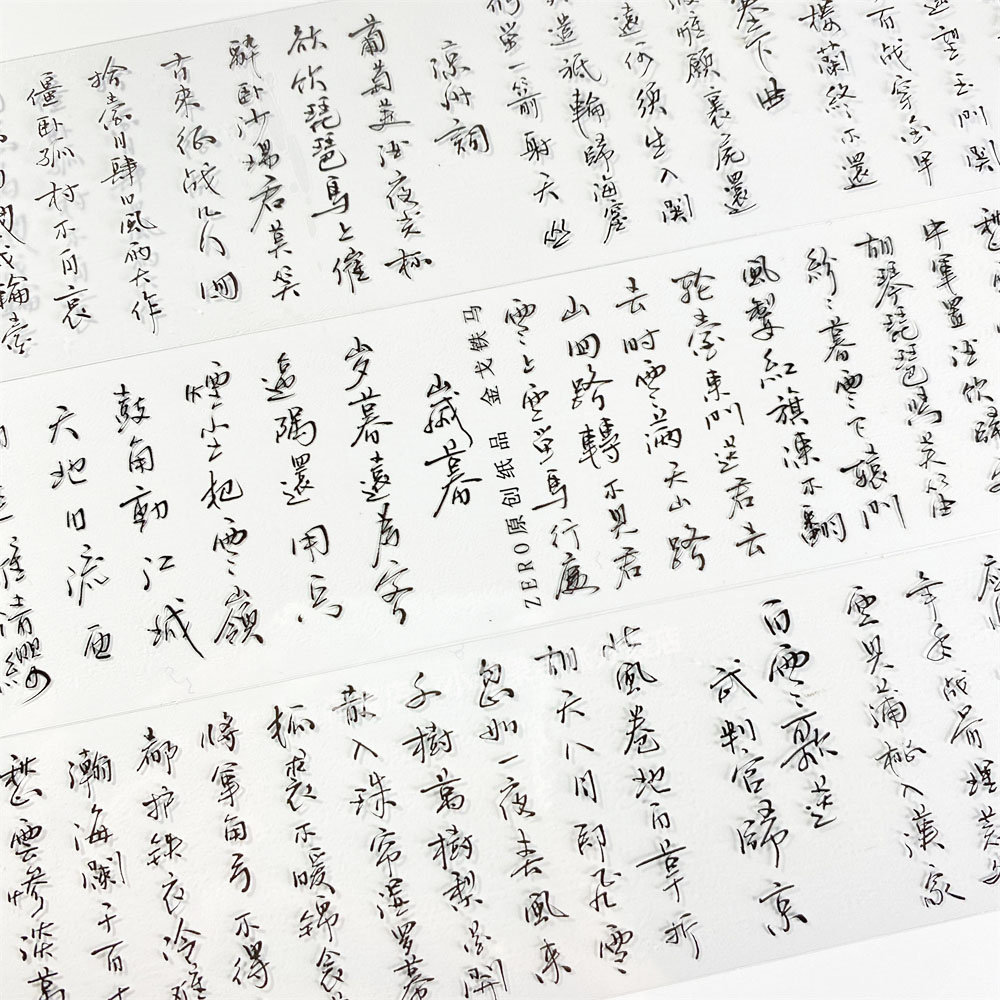 望玉门関
百战穿金甲
楼蘭終不還
塞下曲
惟願裹屍還
遠何須生入関
遣祇輪歸海窟
仍留一箭射天山
涼州詞
葡萄美酒夜光杯
欲飲琵琶馬上催
醉卧沙場君莫笑
古來征战几人回
拾壹月肆日風雨大作
僵卧孤村不自哀
國戍輪臺
中軍置酒飲歸客
胡琴琵琶與羌笛
紛紛暮雪下轅门
風掣紅旗凍不翻
轮臺東门送君去
去时雪滿天山路
山回路轉不見君
雪上空留馬行處
金戈铁马
ZERO原创纸品
歲暮
岁暮遠為客
邊隅還用兵
煙尘犯雪嶺
鼓角動江城
天地日流血
廷誰請纓
年年战骨埋荒外
空見蒲桃入漢家
白雪歌送
武判官歸京
北風卷地百草折
胡天八月即飛雪
忽如一夜春風来
千樹萬樹梨花開
散入珠帘湿罗幕
狐裘不暖錦衾
將軍角弓不得
都护铁衣冷難
瀚海闌干百
愁雲惨淡萬